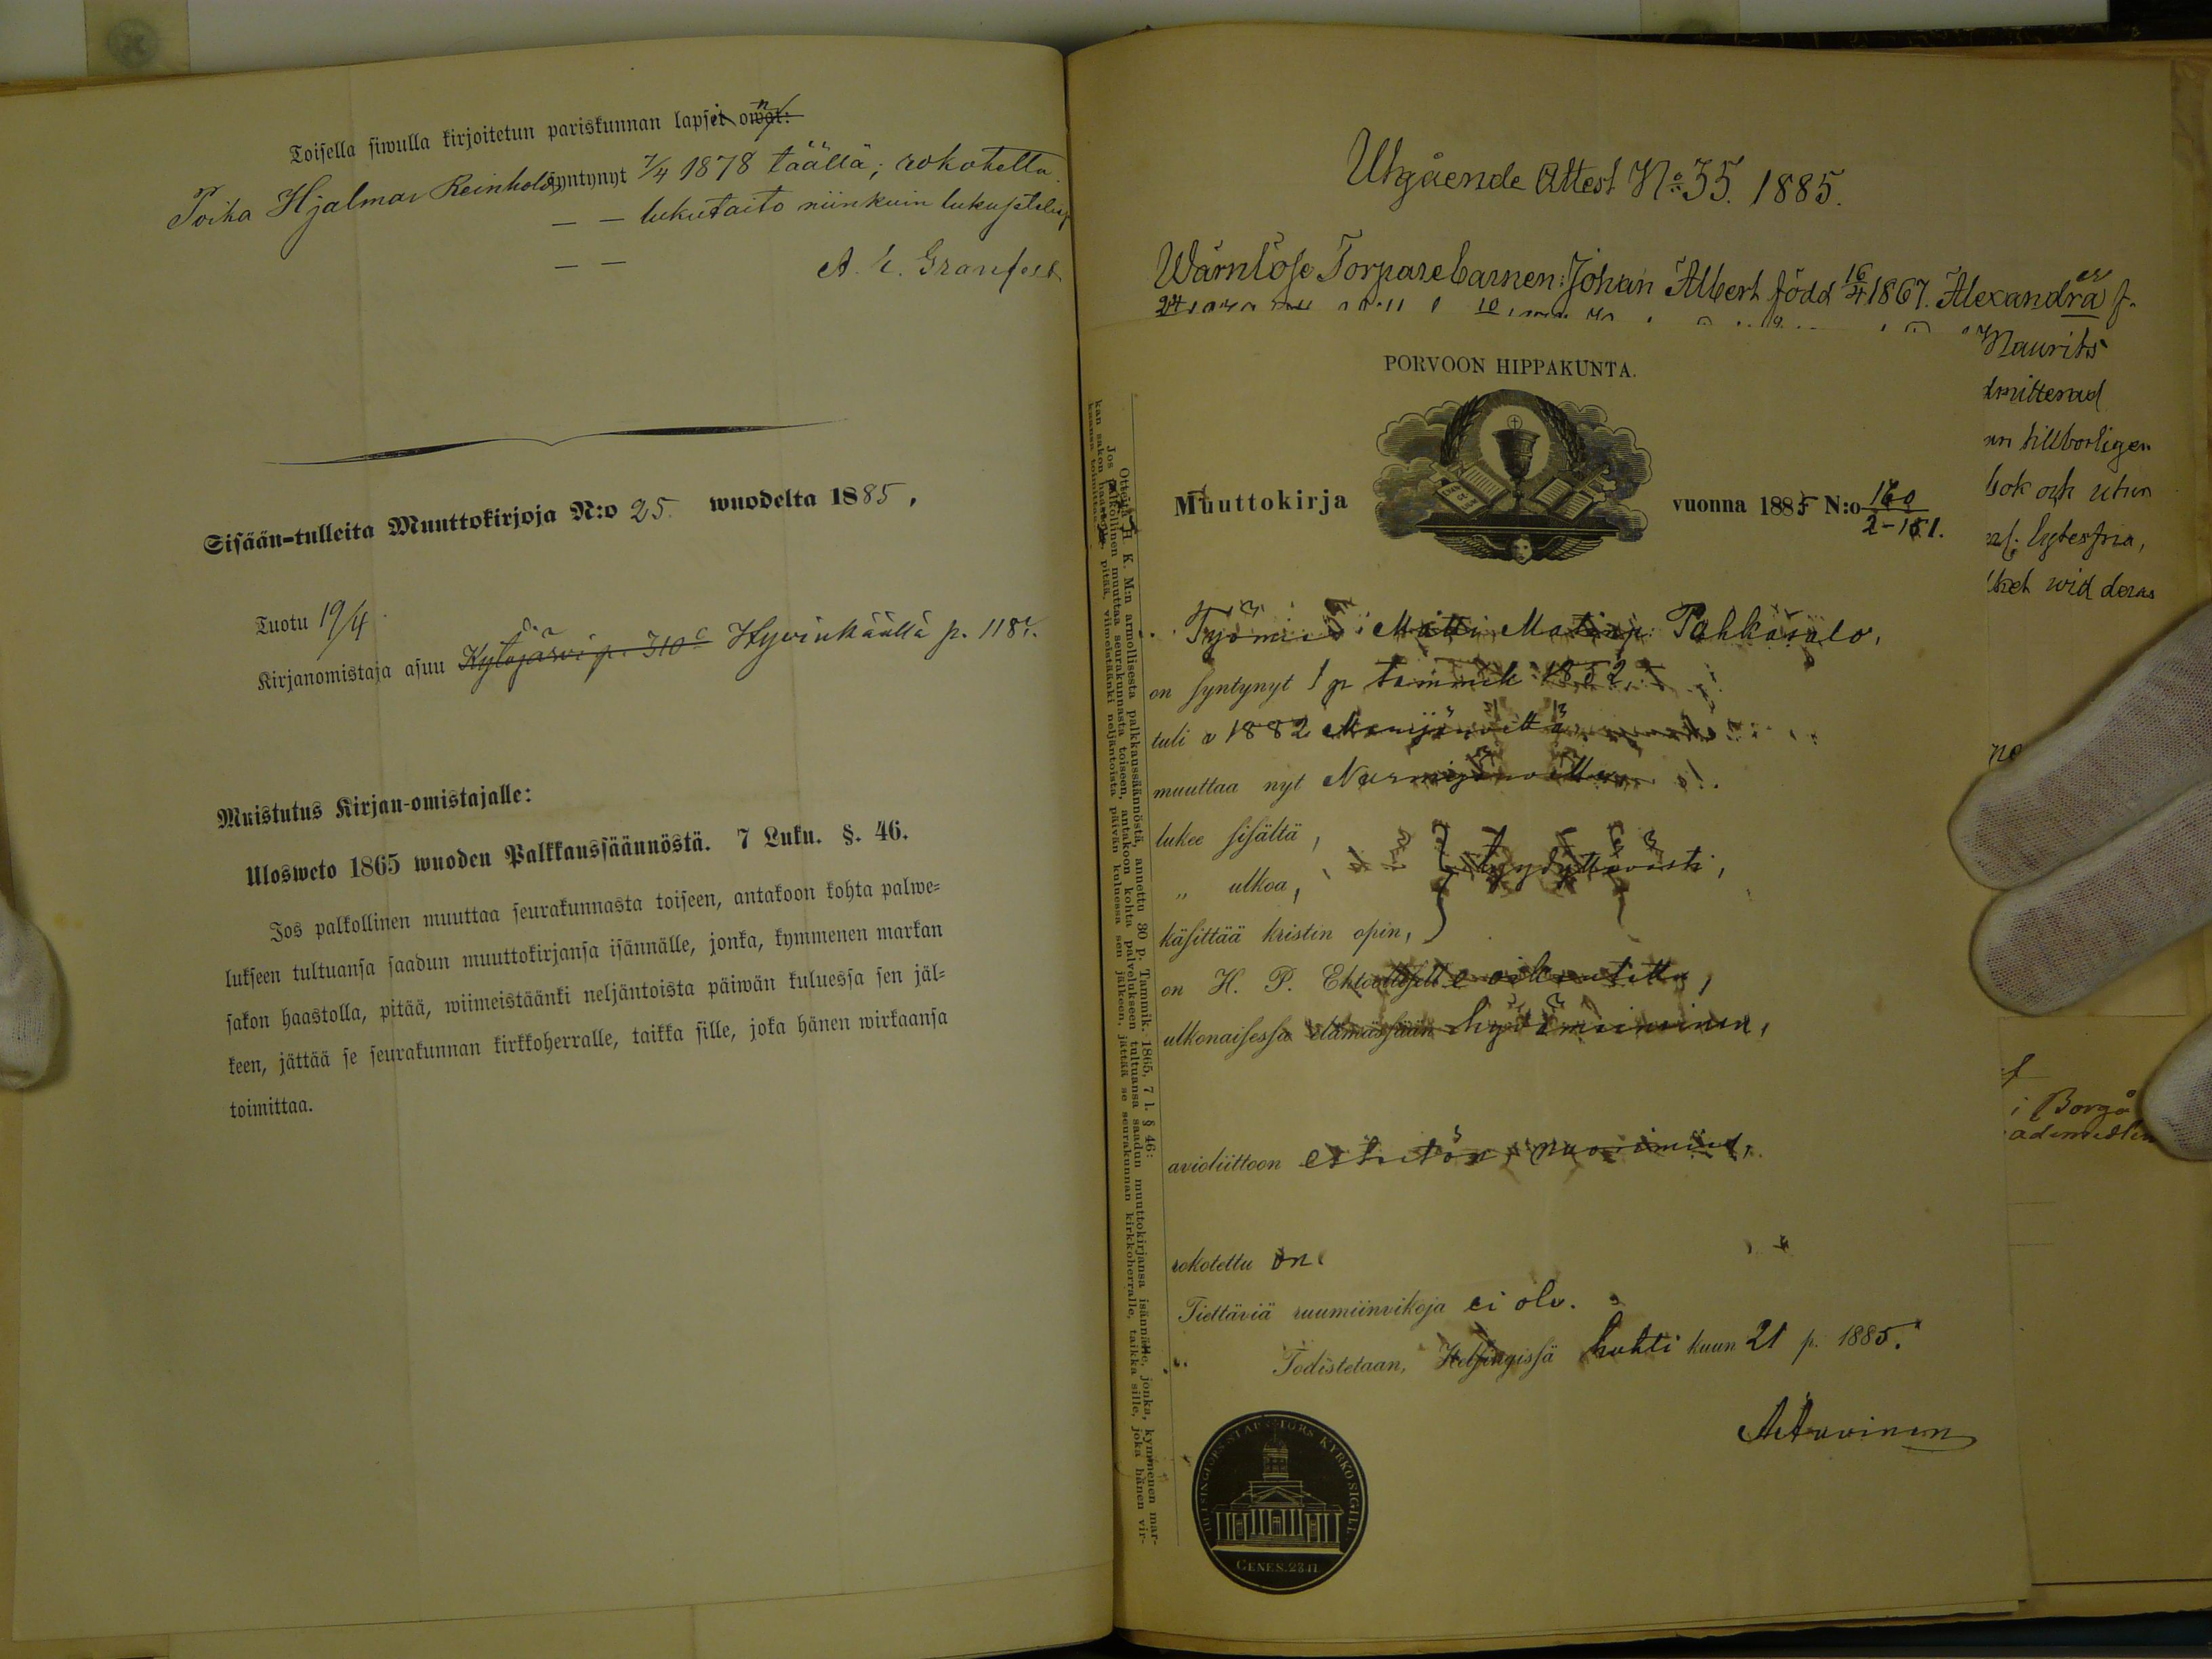 Toisella siwulla kirjoitetun pariskunnan lapsi on
Poika Hjalmar Reinhold syntynyt 7/4 1878 täällä; rokotettu.
— — lukutaito niinkuin
— — A. L. Granfelt
Sisään-tulleita Muuttokirjoja N:o 25 wuodelta 1885.
Tuotu 19/4.
Kirjanomistaja asuu Kytäjärvi p. 310 Hyvinkäällä p. 118.
Muistutus Kirjan-omistajalle:
Ulosweto 1865 wuoden Palkkaussäännöstä. 7 Luku. §. 46.
Jos palkollinen muuttaa seurakunnasta toiseen, antakoon kohta palwe-
lukseen tultuansa saadun muuttokirjansa isännälle, jonka, kymmenen markan
sakon haastolla, pitää, wiimeistäänki neljäntoista päiwän kuluessa sen jäl-
keen, jättää se seurakunnan kirkkoherralle, taikka sille, joka hänen wirkaansa
toimittaa.
Utgående Attest No 35. 1885.
Wärnlöse Torparebarnen: Johan Albert född 16/4 1867. Alexandra f.
Maurits
dmitterad
un tillbörligen
bok och utan
nf. bytesfria,
ket wid deras
i Borgå
PORVOON HIPPAKUNTA.
Muuttokirja vuonna 1885 N:o 160
2-151.
Otteita H. K. M:n armollisesta palkkaussäännöstä, annettu 30 p. Tammik. 1865, 7 l. § 46:
Jos palkollinen muuttaa seurakunnasta toiseen, antakoon kohta palvelukseen tultuansa saadun muuttokirjansa isännälle, jonka, kymmenen mar-
kan sakon haastolla, pitää, viimeistäänki neljäntoista päivän kuluessa sen jälkeen, jättää se seurakunnan kirkkoherralle, taikka sille, joka hänen vir-
kaansa toimittaa.
Työmies Matti Matinp. Pahkasalo,
on syntynyt 1 p tammik 1852,
tuli v 1882
muuttaa nyt Nurmijärvelle
lukee sisältä,
„ ulkoa, } tyydyttävästi,
käsittää kristin opin,
on H. P. Ehtoolliselle oikeutettu,
ulkonaisessa elämässään hyvämaineinen,
avioliittoon esteetön, nuorimies,
rokotettu on.
Tiettäviä ruumiinvikoja ei ole.
Todistetaan, Helsingissä huhti kuun 21 p. 1885.
HELSINGFORS STAD KYRKO SIGILL
GENES. 28 17